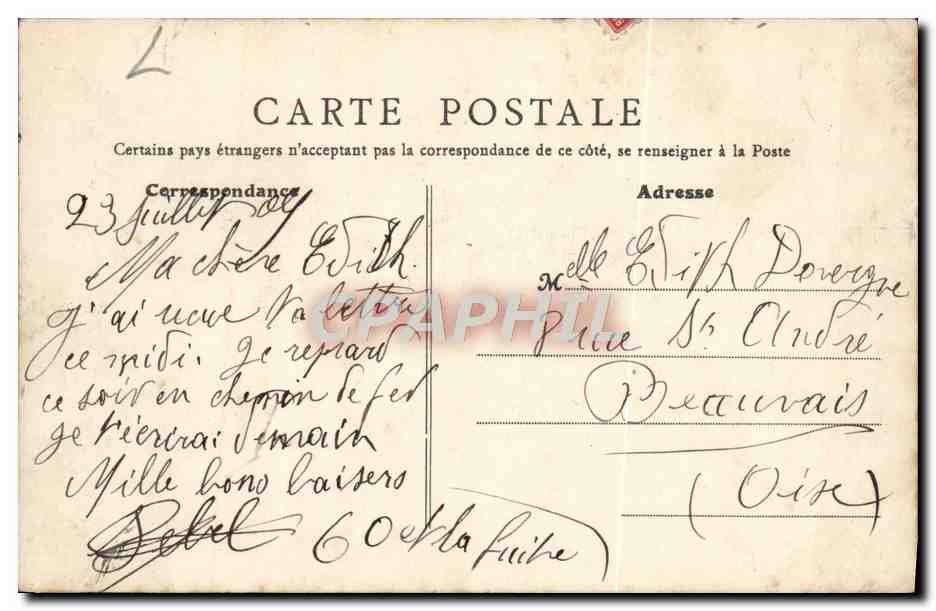 CARTE POSTALE
Certains pays étrangers n'acceptant pas la correspondance de ce côté, se renseigner à la Poste
Correspondance
23 juillet 04
Ma chère Edith.
j'ai recue ta lettre
ce midi. je repard
ce soir en chemin de fer
je t'écrirai demain
Mille bons baisers
Bebel 60 et la suite
Adresse
Melle Edith Dovergne
8 rue St André
Beauvais
(Oise)
CPAPHIL